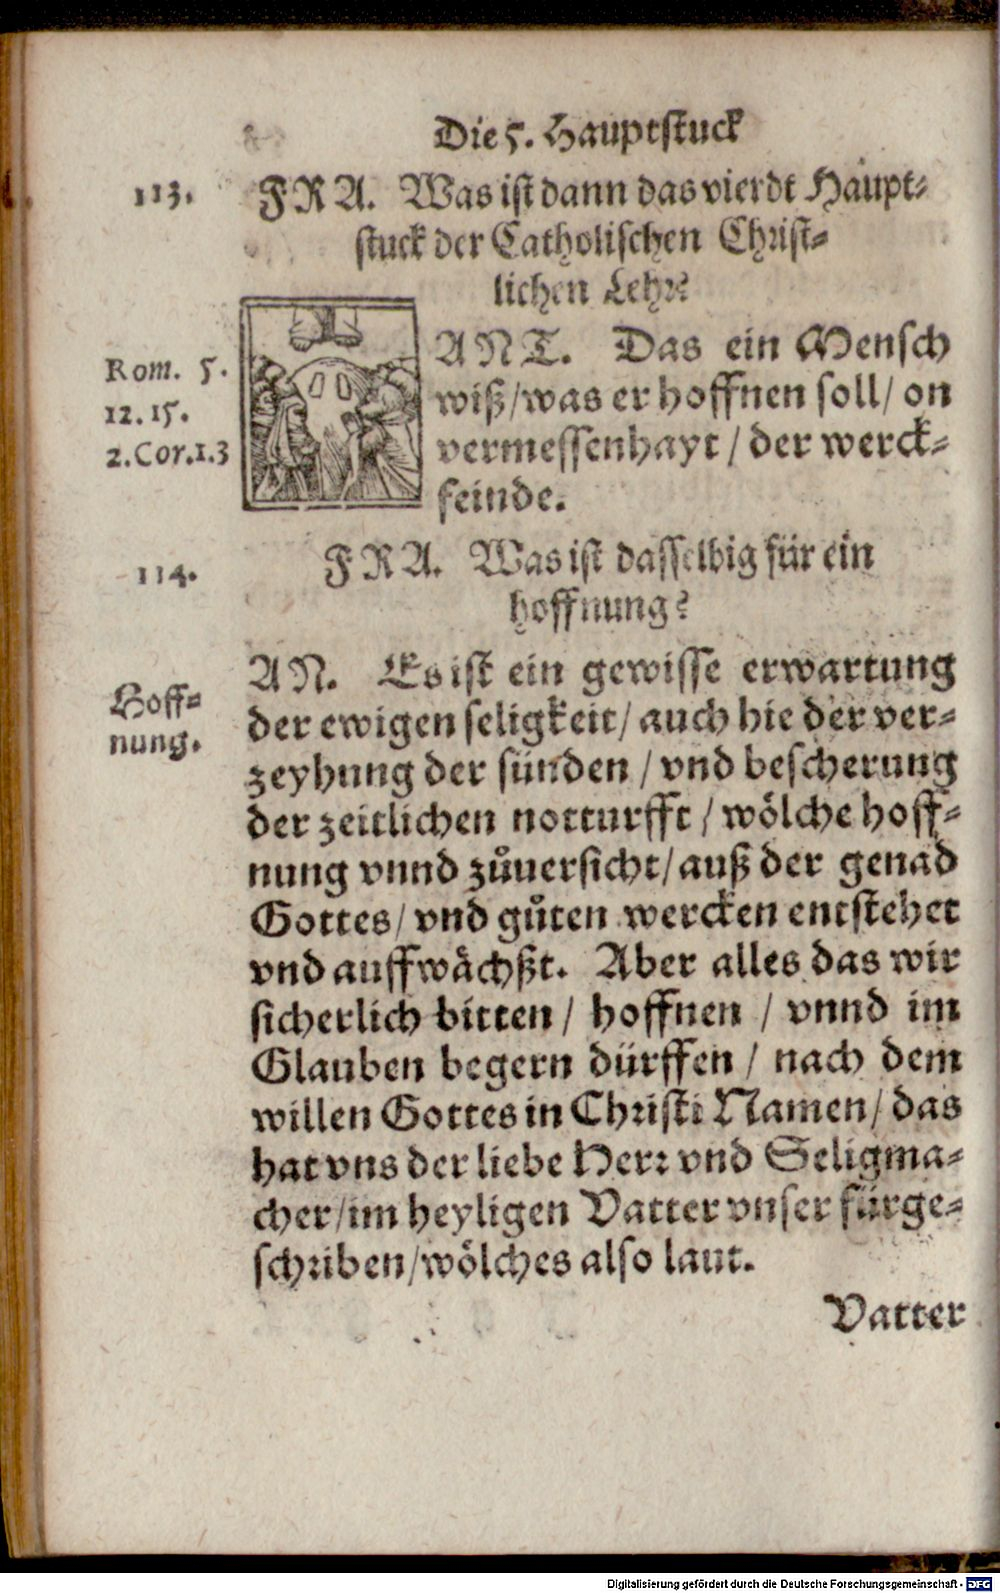 Die 5. Hauptstuck
113. FRA. Was ist dann das vierdt Haupt-
stuck der Catholischen Christ-
lichen Lehr?
ANT. Das ein Mensch
Rom. 5. wiß/was er hoffnen soll/ on
12. 15.
2.Cor.1.3 vermessenhayt / der werck-
feinde.
114. FRA. Was ist dasselbig für ein
hoffnung?
AN. Es ist ein gewisse erwartung
Hoff- der ewigen seligkeit/ auch hie der ver-
nung. zeyhung der sünden / vnd bescherung
der zeitlichen notturfft / wölche hoff-
nung vnnd zůuersicht/ auß der genad
Gottes/ vnd gůten wercken entstehet
vnd auffwächßt. Aber alles das wir
sicherlich bitten / hoffnen / vnnd im
Glauben begern dürffen / nach dem
willen Gottes in Christi Namen/ das
hat vns der liebe Herr vnd Seligma-
cher/im heyligen Vatter vnser fürge-
schriben/wölches also laut.
Vatter
Digitalisierung gefördert durch die Deutsche Forschungsgemeinschaft - DFG